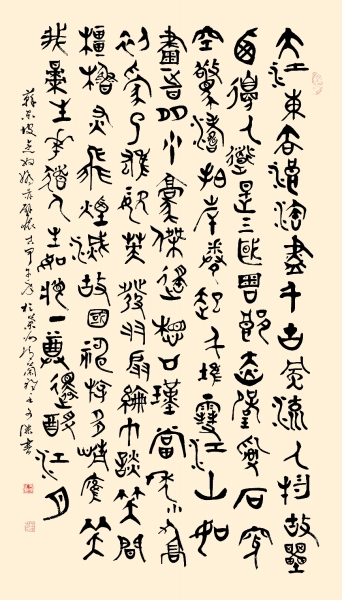 大江東去浪淘盡千古風流人物故壘
西邊人道是三國周郎赤壁亂石穿
空驚濤拍岸卷起千堆雪江山如
畫一時多少豪傑遙想公瑾當年小喬
初嫁了雄姿英發羽扇綸巾談笑間
檣櫓灰飛煙滅故國神游多情應笑
我早生華髮人生如夢一尊還酹江月
蘇東坡念奴嬌赤壁懷古甲午